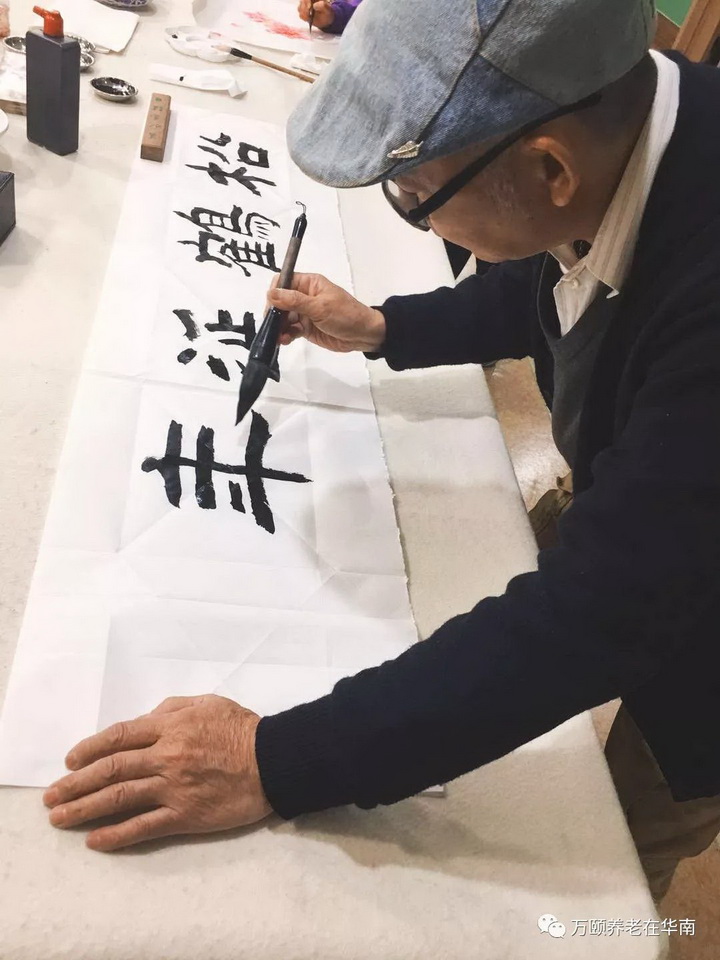 松鶴延年
万颐养老在华南